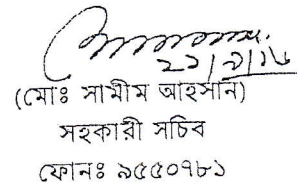 ২১/৯/১৬
(মোঃ সামীম আহসান)
সহকারী সচিব
ফোনঃ ৯৫৫০৭৮১